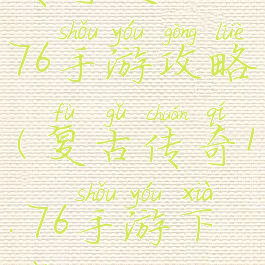 shǒu yóu gōng lüè
76手游攻略
fù gǔ chuán qí
(复古传奇1
shǒu yóu xià
.76手游下